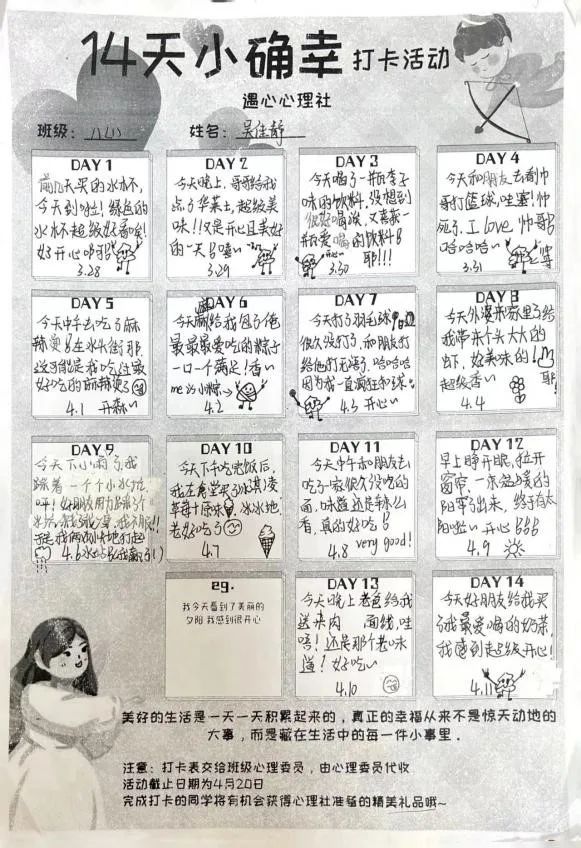 14天小确幸 打卡活动
遇心心理社
班级： 姓名：吴佳静
DAY 1
前几天买的水杯,
今天到啦！绿色的
水杯超级好看哈!
好开心
3.28
DAY 2
今天晚上, 哥哥给我
点了华莱士, 超级美
味!!又是开心且美好
的一天
3.29
DAY 3
今天喝了一瓶李子
味的饮料, 没想到
很好喝诶, 又喜获一
瓶爱喝的饮料
耶!!!
3.30
DAY 4
今天和朋友去看帅
哥打篮球, 哇塞! 帅
死了. I love 帅哥
哈哈哈~
3.31
DAY 5
今天中午去吃了麻
辣烫 在水头街那
这可能是我吃过最
好吃的麻辣烫了
4.1 开森~
DAY 6
今天 给我包了俺
最最最爱吃的粽子
一口一个满足! 香~
me的小粽→
4.2
DAY 7
今天打了羽毛球
很久没打了, 和朋友打
给他打无语了. 哈哈哈
因为我一直疯狂扣球
4.3 开心~
DAY 8
今天外婆来家里了给
我带来个头大大的
虾, 好美味的!
超级香~ 耶!
4.4
DAY 9
今天下小雨了我
踩着一个个小水坑
呀! 好朋友用力踩了个
4.6
DAY 10
今天下午吃完饭后,
我在食堂买了冰淇凌
草莓十原味 冰冰地
老好吃了
4.7
DAY 11
今天中午和朋友去
吃了一家很久没吃的
面, 味道还是辣么
香, 真的好吃
4.8 very good!
DAY 12
早上睁开眼, 拉开
窗帘, 一束温暖的
阳 出来, 终于有太
阳啦~ 开心
4.9
eg.
我今天看到了美丽的
夕阳 我感到很开心
DAY 13
今天晚上老爸给我
送 肉 面线, 哇
唔! 还是那个老味
道! 好吃~
4.10
DAY 14
今天好朋友给我买
了我最爱喝的奶茶,
我感到超级开心!
4.11
美好的生活是一天一天积累起来的，真正的幸福从来不是惊天动地的
大事，而是藏在生活中的每一件小事里．
注意：打卡表交给班级心理委员，由心理委员代收
活动截止日期为4月20日
完成打卡的同学将有机会获得心理社准备的精美礼品哦~